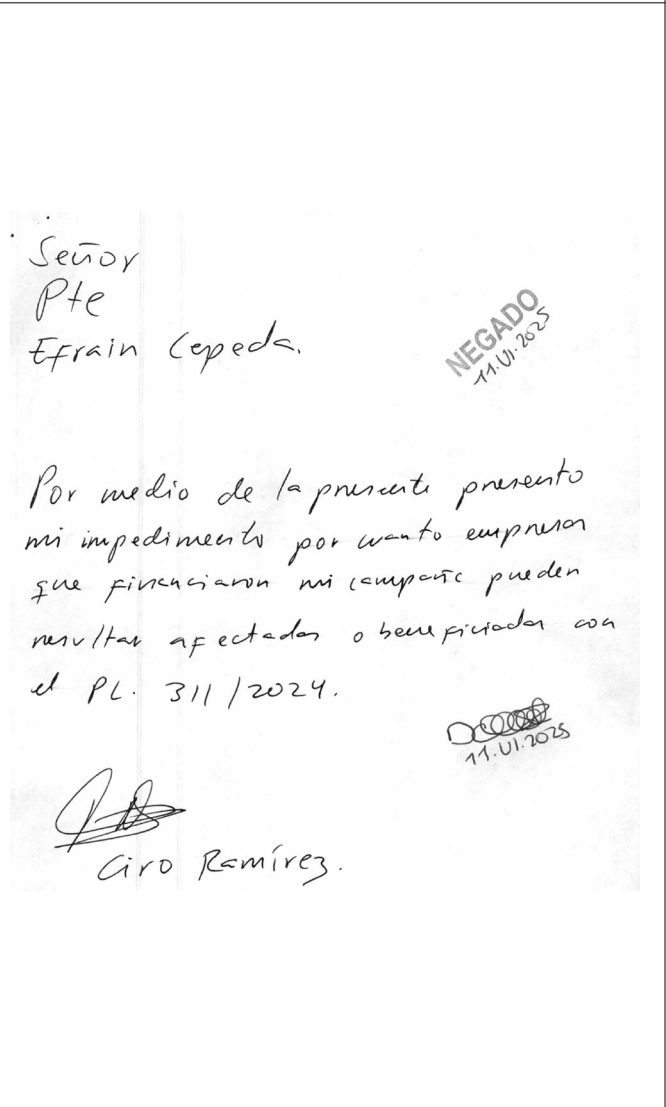 Señor
Pte
Efrain Cepeda.
NEGADO
11.VI.2025
Por medio de la presente presento
mi impedimento por cuanto empresas
que financiaron mi campaña pueden
resultar afectadas o beneficiadas con
el PL. 311/2024.
11.VI.2025
Ciro Ramírez.